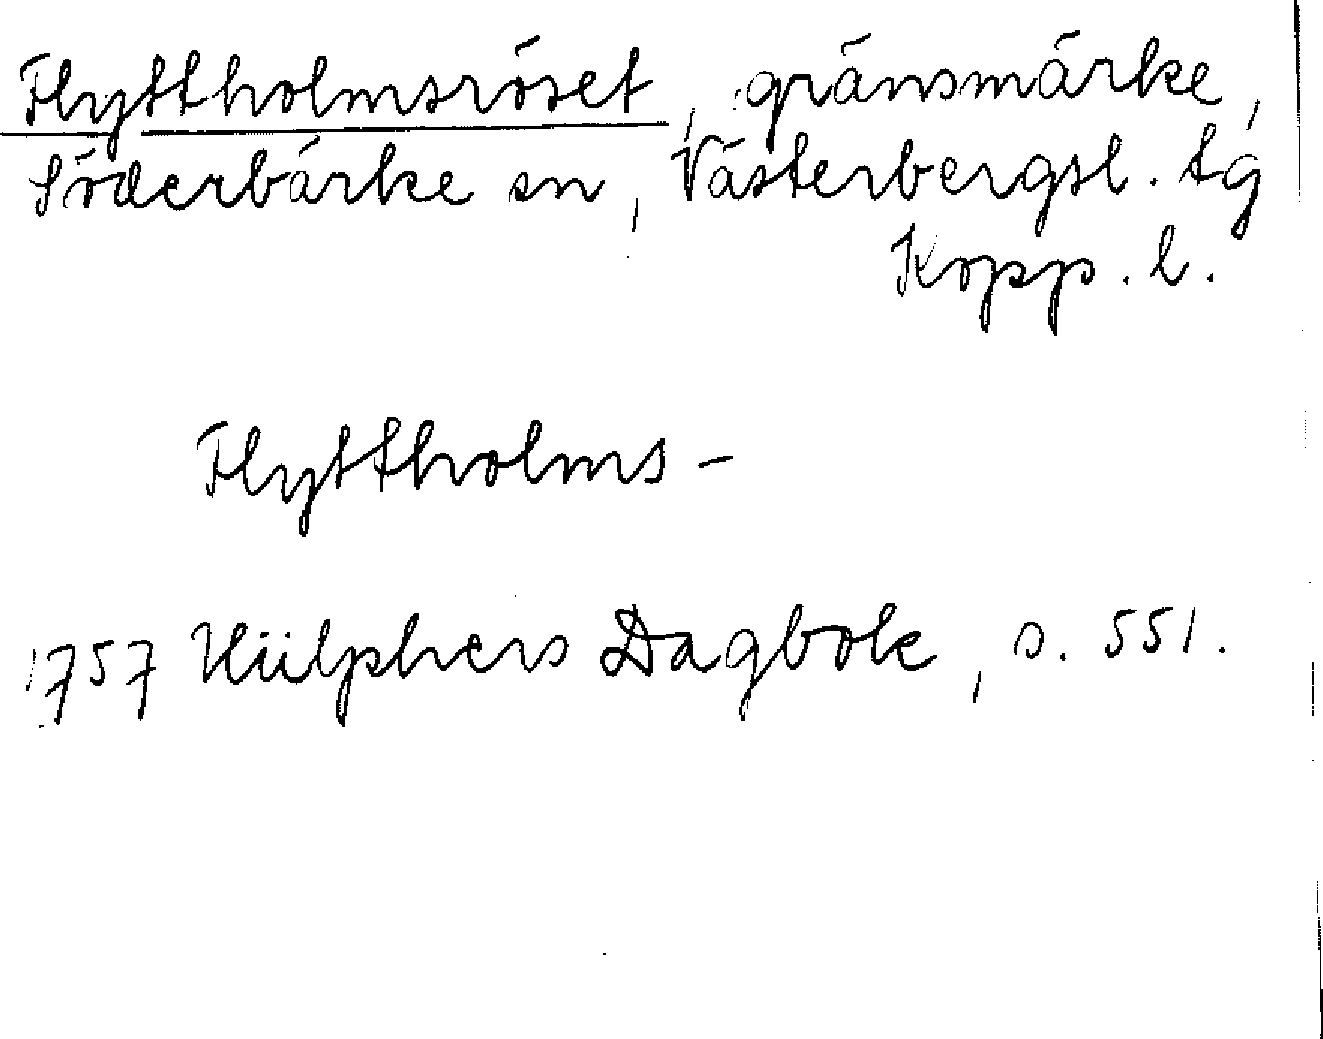 Flyttholmsröset, gränsmärke,
Söderbärke sn, Västerbergsl. tg
Kopp. l.
Flyttholms-
1757 Hülphers Dagbok, s. 551.